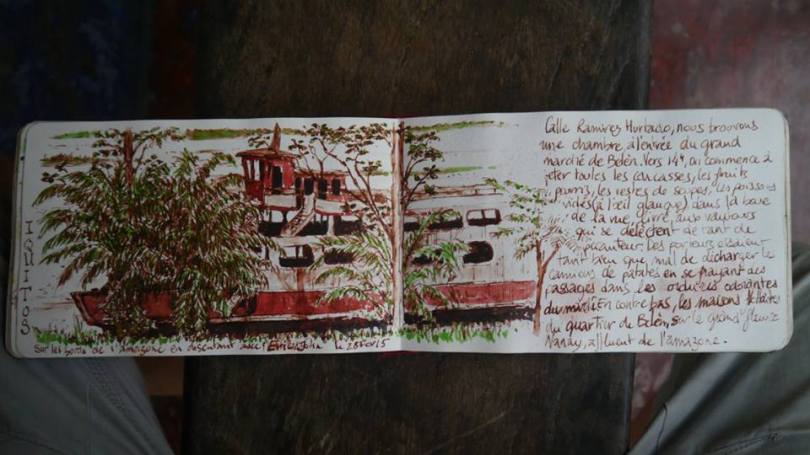 IQUITOS
Sur les bords de l'Amazone en descendant avec le 28 Fev 15
Calle Ramirez Hurtado, nous trouvons
une chambre à l'entrée du grand
marché de Belén. Vers 14h, on commence à
jeter toutes les carcasses, les fruits
pourris, les restes de soupes, les poissons
vidés (à l'œil glauque) dans la boue
de la rue, livré aux vautours
qui se délectent de tant de
puanteur. Des porteurs essaient
tant bien que mal de décharger le
camions de patates en se frayant des
passages dans les ordures odorantes
du marché. En contre bas, les maisons flottantes
du quartier de Belén, sur le grand fleuve
Nanay, affluent de l'amazone.